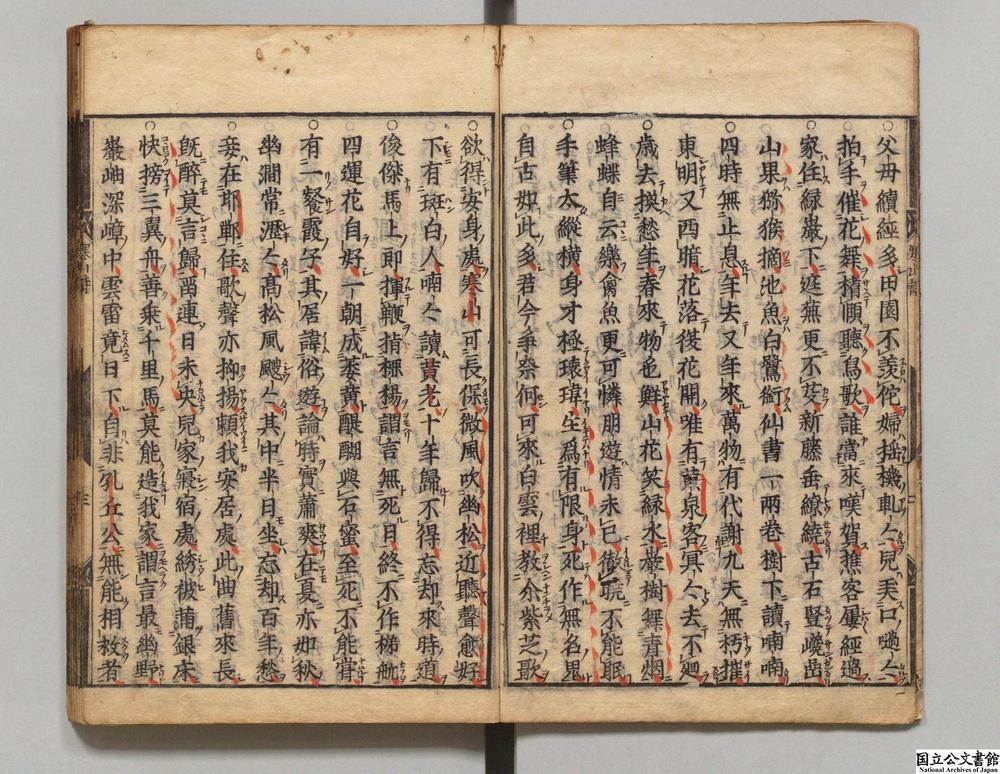 ○父母續經多田園不羨佗婦搖機軋〻兒美口喎〻
拍手催花舞搘頤聽鳥歌誰當來嘆賀樵客屢經過
○家住綠巖下庭蕪更不芟新藤垂繚繞古石豎巉嵒
山果獼猴摘池魚白鷺銜仙書一兩卷樹下讀喃喃
○四時無止息年去又年來萬物有代謝九天無朽摧
東明又西暗花落復花開唯有黃泉客冥〻去不廻
○歲去換愁年春來物色鮮山花笑綠水巖樹舞青烟
蜂蝶自云樂禽魚更可憐朋遊情未已徹曉不能眠
○手筆太縱橫身才極瓌瑋生爲有限身死作無名鬼
自古如此多君今爭奈何可來白雲裡教尒紫芝歌
○欲得安身處寒山可長保微風吹幽松近聽聲愈好
下有斑白人喃〻讀黃老十年歸不得忘却來時道
○俊傑馬上郎揮鞭指柳楊謂言無死日終不作梯航
四運花自好一朝成萎黃醍醐與石蜜至死不能甞
○有一餐霞子其居諱俗遊論時實蕭爽在夏亦如秋
幽澗常瀝〻高松風颼〻其中半日坐忘却百年愁
○妾在邯鄲住歌聲亦抑揚頼我安居處此曲舊來長
旣醉莫言歸畱連日未央兒家寢宿處綉被滿銀床
○快搒三翼舟善乘千里馬莫能造我家謂言最幽野
巖岫深嶂中雲雷竟日下自非孔丘公無能相救者
国立公文書館
National Archives of Japan